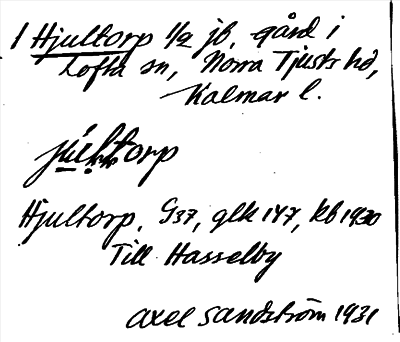 1 Hjultorp 1/2 jb, gård i
Lofta sn, Norra Tjusts hd,
Kalmar l.
Hjultorp, G37, glk 147, kb 1930
Till Hasselby
Axel Sandström 1931